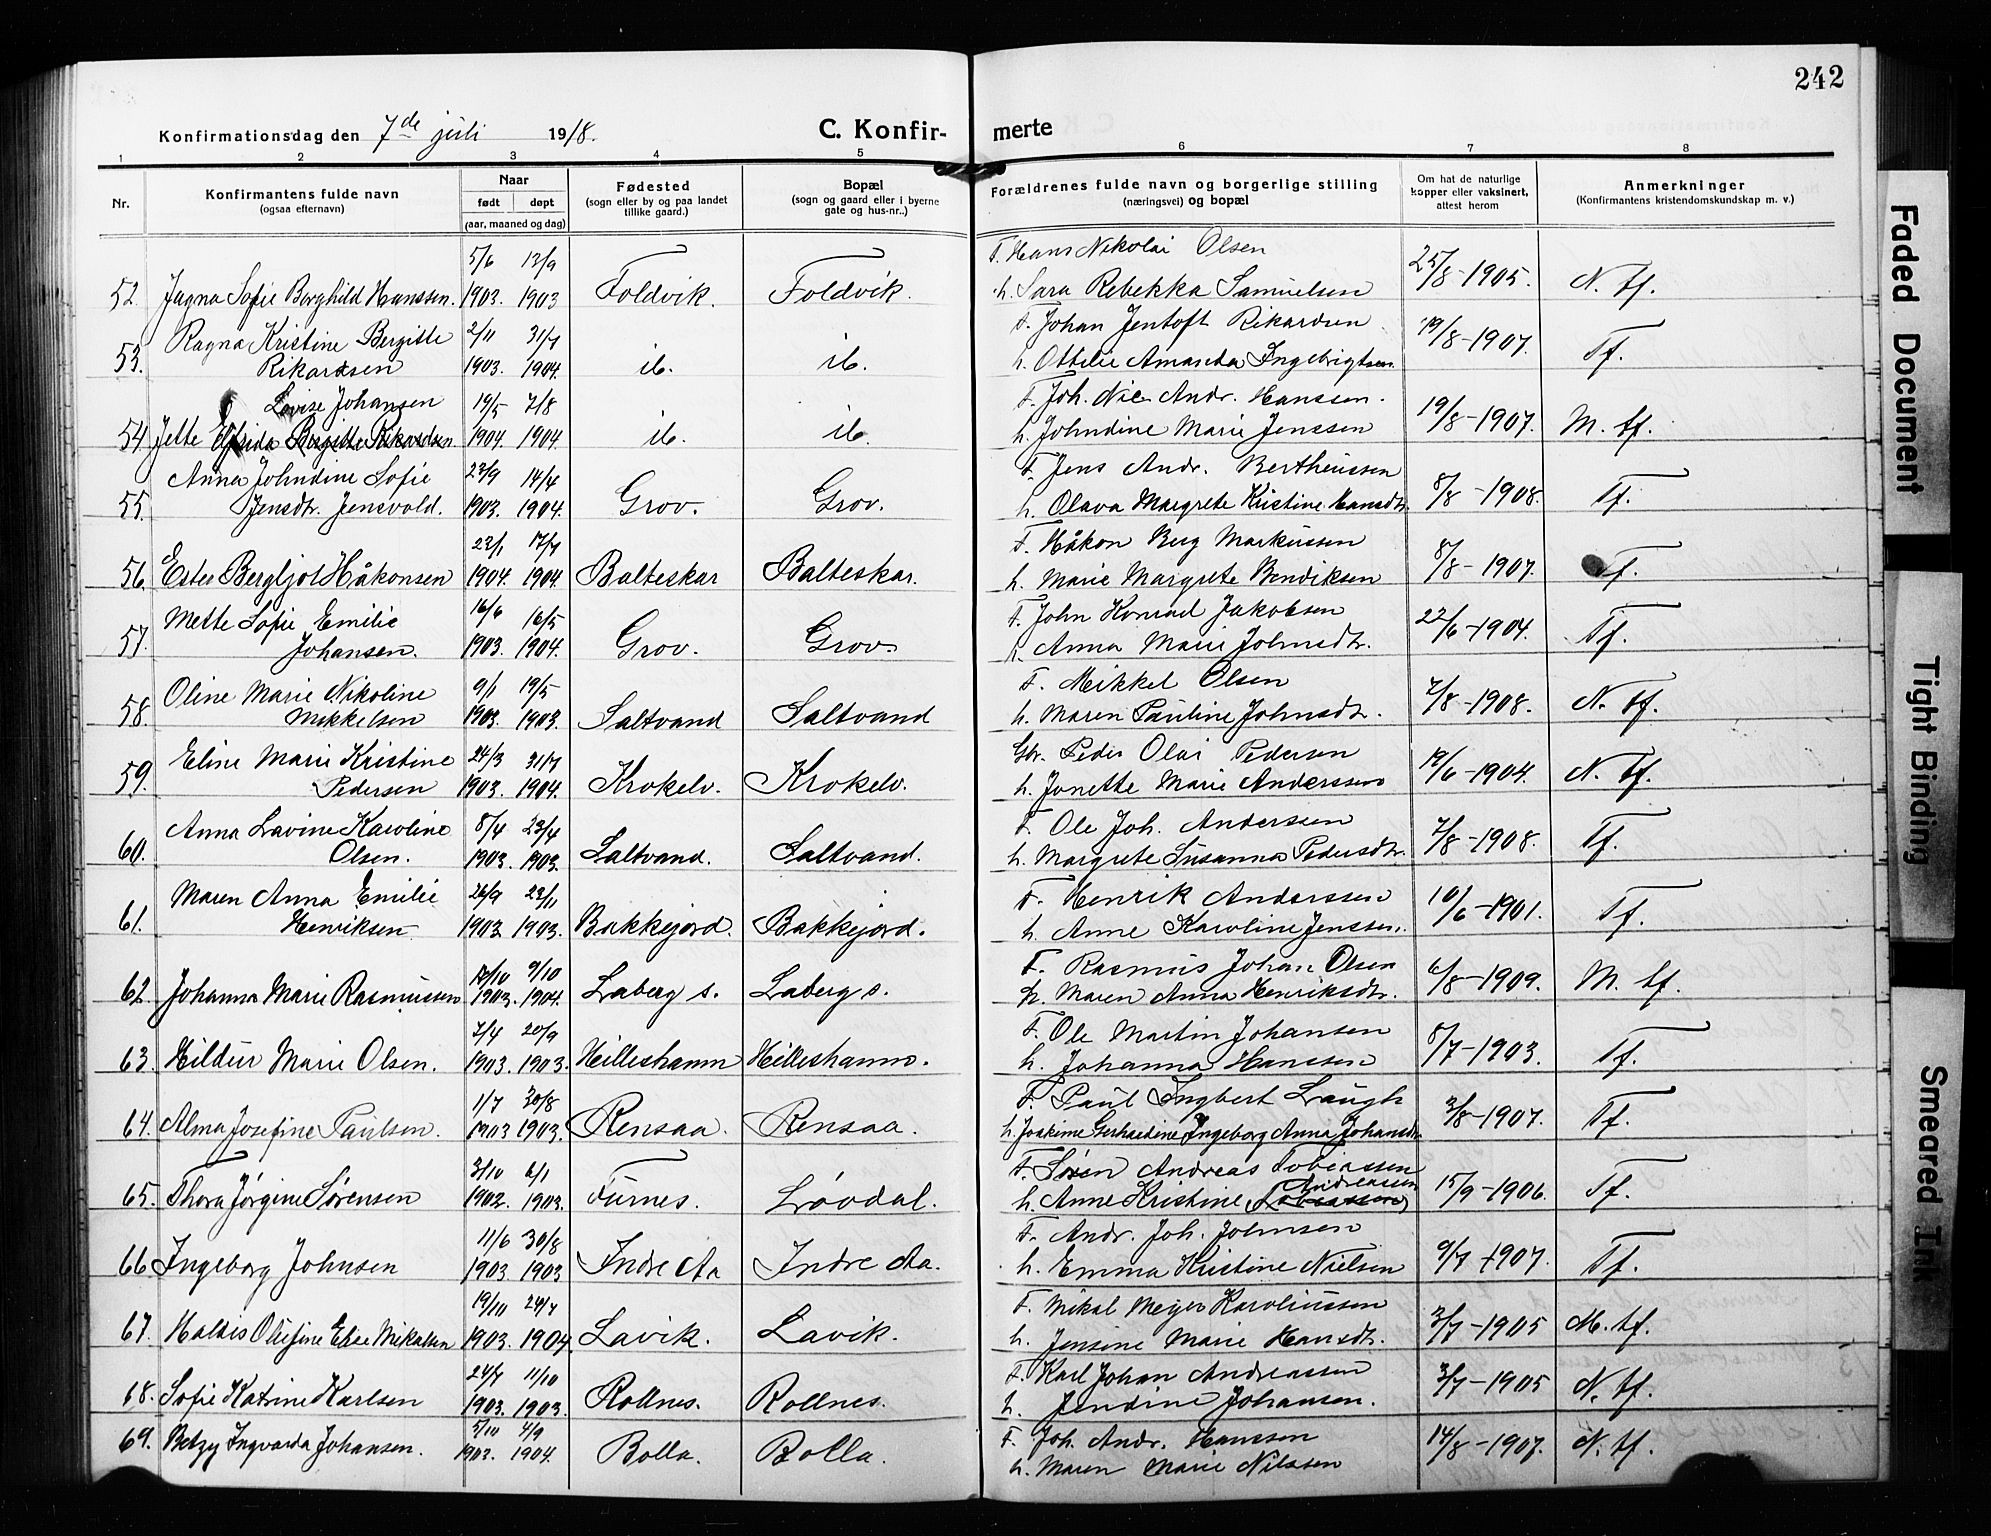 242
Konfirmationsdag den 7de juli 1918.
C. Konfirmerte
1 2 3 4 5 6 7 8
Nr.
Konfirmantens fulde navn
(ogsaa efternavn)
Naar
født døpt
(aar, maaned og dag)
Fødested
(sogn eller by og paa landet
tillike gaard.)
Bopæl
(sogn og gaard eller i byerne
gate og hus-nr.)
Forældrenes fulde navn og borgerlige stilling
(næringsvei) og bopæl
Om hat de naturlige
kopper eller vaksinert,
attest herom
Anmerkninger
(Konfirmantens kristendomskundskap m. v.)
5/6 13/9 F. Hans Nikolai Olsen
52. Jagna Sofie Borghild Hanssen. 1903. 1903 Foldvik. Foldvik. h. Sara Rebekka Samuelsen 25/8-1905. N. tf.
Ragna Kristine Bergitte 2/11 31/7 F. Johan Jentoft Rikardsen
53. Rikardsen 1903. 1904. ib. ib. h. Ottelie Amanda Ingebrigtsen 19/8-1907. Tf.
Lovise Johansen 19/5 7/8 F. Joh. Nic. Andr. Hanssen.
54. Jette Elfrida Bergitte Rikardsen 1904. 1904 ib. ib. h. Johndine Marie Jenssen 19/8-1907. M. tf.
Anna Johndine Sofie 23/9 14/4 F. Jens Andr. Bertheussen
55. Jensdtr. Jensvold. 1903. 1904. Grov. Grov. h. Olava Margrete Kristine Hansdtr. 8/8-1908. Tf.
23/1 17/7 F. Håkon Berg Markussen
56. Ester Bergljot Håkonsen 1904. 1904. Balteskar Balteskar. h. Marie Margrete Bendiksen 8/8-1907. Tf.
Mette Sofie Emilie 16/6 16/5 F. John Konrad Jakobsen
57. Johansen. 1903. 1904. Grov. Grov. h. Anna Marie Johnsdtr. 22/6-1904. Tf.
Oline Marie Nikoline 9/1 19/5 F. Mikkel Olsen
58. Mikkelsen 1903. 1903. Saltvand Saltvand h. Maren Pauline Johnsdtr. 7/8-1908. N. tf.
Eline Marie Kristine 24/3 31/7 Gbr. Peder Olai Pedersen
59. Pedersen 1903. 1904. Krokelv. Krokelv. h. Jonette Marie Anderssen 19/6-1904. N. tf.
Anna Lavine Karoline 8/4 23/4 F. Ole Joh. Anderssen
60. Olsen. 1903. 1903. Saltvand. Saltvand. h. Margrete Susanna Pedersdtr. 7/8-1908. Tf.
Maren Anna Emilie 26/9 22/11 F. Henrik Anderssen
61. Henriksen 1903. 1903. Bakkejord. Bakkejord. h. Anne Karoline Jenssen. 10/6-1901. Tf.
9/10 F. Rasmus Johan Olsen
62. Johanna Marie Rasmussen 1903. 1904. Laberg s. Laberg s. h. Maren Anna Henriksdtr. 6/8-1909. M. tf.
7/4 20/9 F. Ole Martin Johansen
63. Hildur Marie Olsen. 1903. 1903. Hilleshamn Hilleshamn. h. Johanna Hanssen 8/7-1903. Tf.
1/7 30/8 F. Paul Ingbert Laugh
64. Alma Josefine Paulsen. 1903 1903. Rensaa. Rensaa. h. Joakime Gerhardine Ingeborg Anna Johansdtr. 3/8-1907. Tf.
3/10 6/1 F. Søren Andreas Tobiassen
65. Thora Jørgine Sørensen 1902. 1903. Furnes. Løvdal. h. Anne Kristine Andreassen (Tobiassen) 15/9-1906. Tf.
11/6 30/8 F. Andr. Joh. Johnsen
66 Ingeborg Johnsen 1903 1903 Indre Aa Indre Aa. h. Emma Kristine Nielsen 9/7-1907. Tf.
19/10 24/7 F. Mikal Meyer Karoliussen
67. Haldis Olufine Elise Mikalsen 1903. 1904. Lavik. Lavik. h. Jensine Marie Hansdtr. 3/7-1905 M. tf.
24/7 11/10 F. Karl Johan Andreassen
68. Sofie Katrine Karlsen 1903. 1903. Rollnes. Rollnes. h. Jendine Johansen. 3/7-1905 N. tf.
5/10 4/9 F. Joh. Andr. Hanssen
69. Betzy Ingvarda Johansen. 1903. 1904. Bolla. Bolla. h. Maren Marie Nilssen 14/8-1907. N. tf.
Faded Document
Tight Binding
Smeared Ink